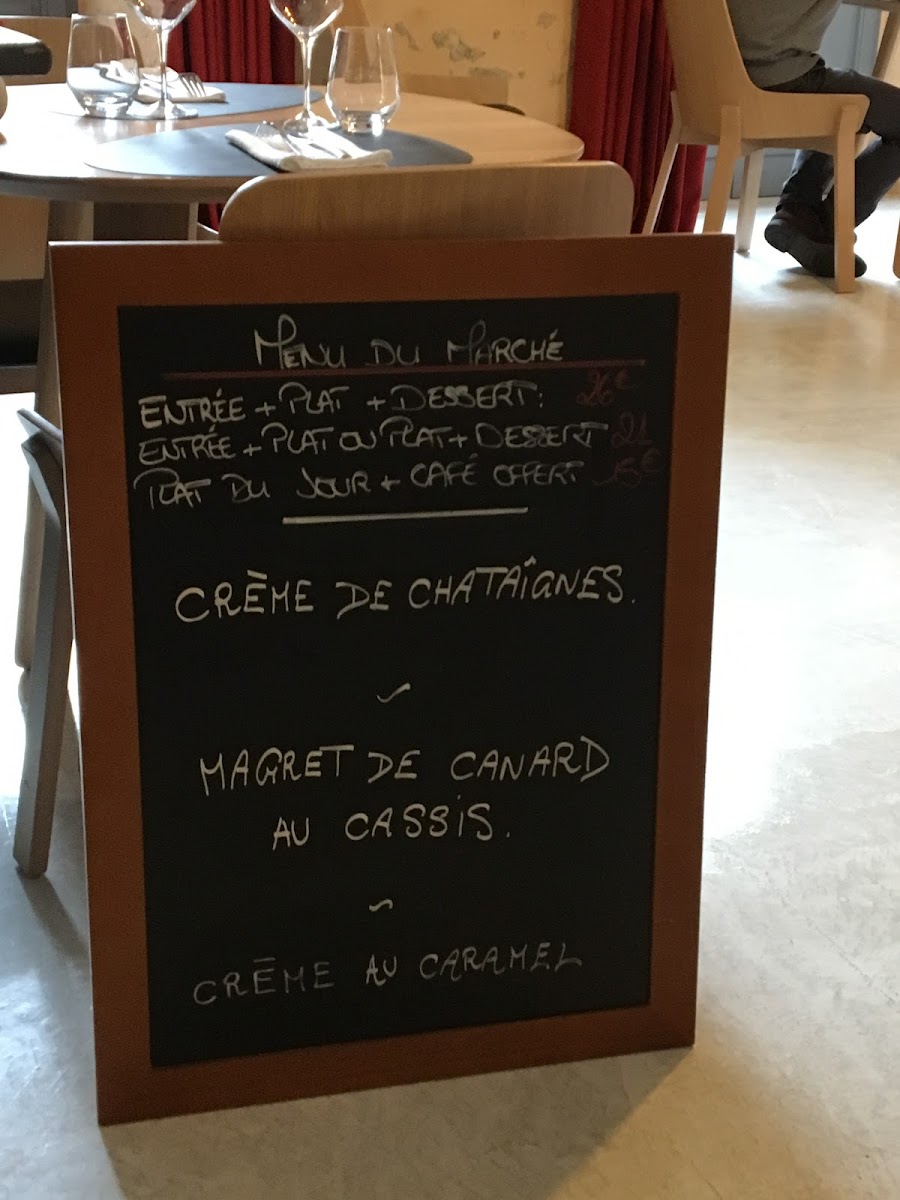 MENU DU MARCHÉ
ENTRÉE + PLAT + DESSERT: 26€
ENTRÉE + PLAT OU PLAT + DESSERT 21
PLAT DU JOUR + CAFÉ OFFERT 15€
CRÈME DE CHATAÎGNES.
~
MAGRET DE CANARD
AU CASSIS.
~
CRÈME AU CARAMEL